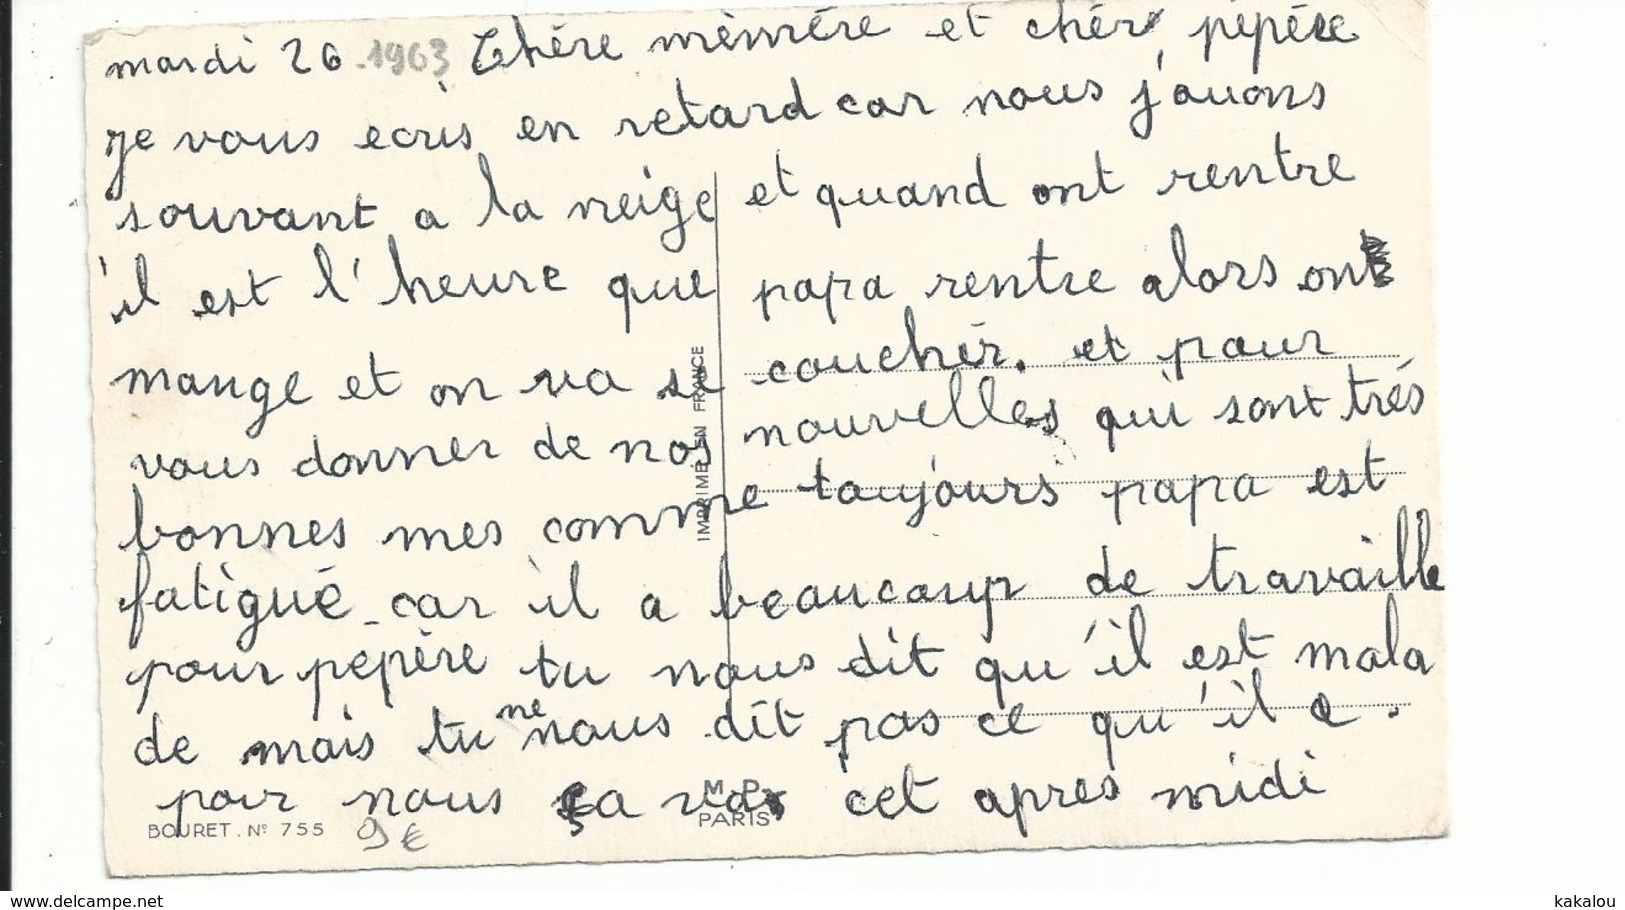 mardi 26 1963 Chère mèmére et chér pépére
je vous ecris en retard car nous j'ouons
souvant a la neige et quand ont rentre
il est l'heure que papa rentre alors on
mange et on va se couchér. et pour
vous donner de nos nouvelles qui sont trés
bonnes mes comme toujours papa est
fatigué car il a beaucoup de travaille
pour pepère tu nous dit qu'il est mala
de mais tu ne nous dit pas ce qu'il a.
pour nous ça va cet apres midi
IMPRIMÉ EN FRANCE
M. P.
PARIS
BOURET. Nº 755
9€
www.delcampe.net
kakalou